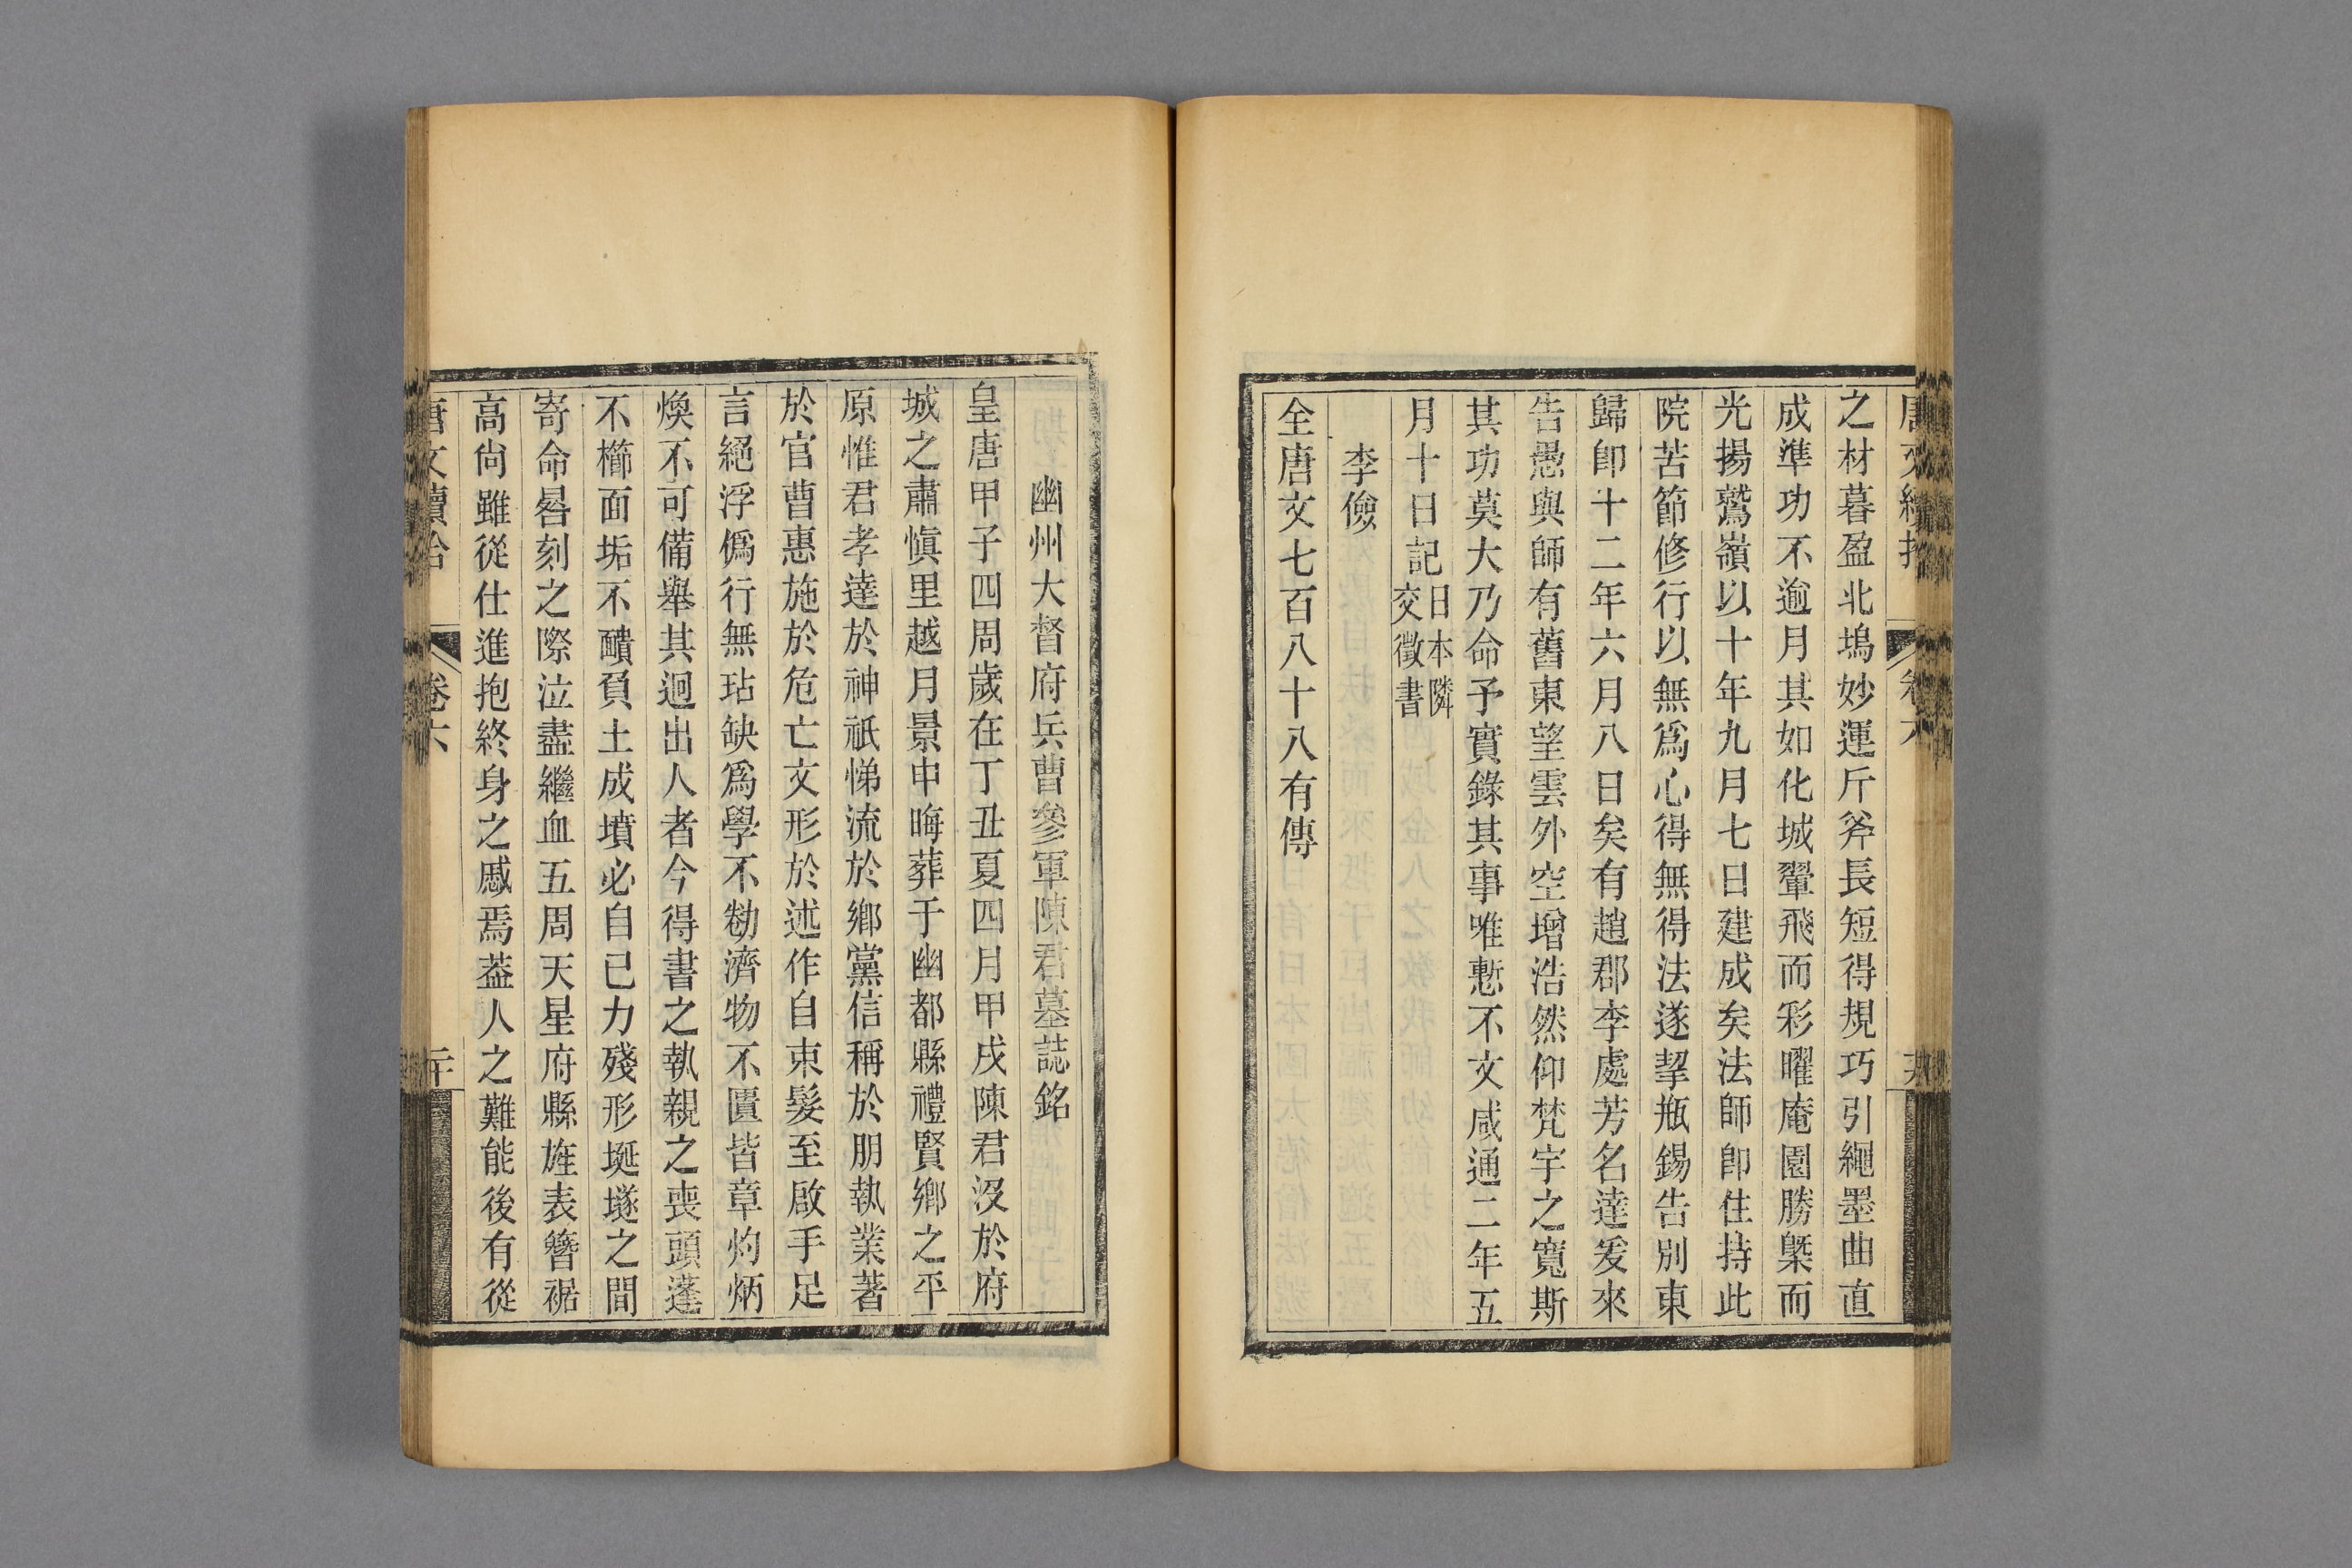 之材暮盈北塢妙運斤斧長短得規巧引繩墨曲直
成準功不逾月其如化城翬飛而彩曜庵園勝槩而
光揚鷲嶺以十年九月七日建成矣法師卽住持此
院苦節修行以無爲心得無得法遂挈瓶錫告別東
歸卽十二年六月八日矣有趙郡李處芳名達爰來
告愚與師有舊東望雲外空增浩然仰梵宇之寬斯
其功莫大乃命予實錄其事唯慙不文咸通二年五
月十日記日本隣交徵書
李儉
全唐文七百八十八有傳
幽州大督府兵曹參軍陳君墓誌銘
皇唐甲子四周歲在丁丑夏四月甲戌陳君沒於府
城之肅愼里越月景申晦葬于幽都縣禮賢鄉之平
原惟君孝達於神祇悌流於鄉黨信稱於朋執業著
於官曹惠施於危亡文形於述作自束髮至啟手足
言絕浮僞行無玷缺爲學不勌濟物不匱皆章灼炳
煥不可備舉其迥出人者今得書之執親之喪頭蓬
不櫛面垢不靧負土成墳必自己力殘形埏墜之間
寄命晷刻之際泣盡繼血五周天星府縣旌表簪裾
高尙雖從仕進抱終身之慼焉葢人之難能後有從
唐文續拾
卷六